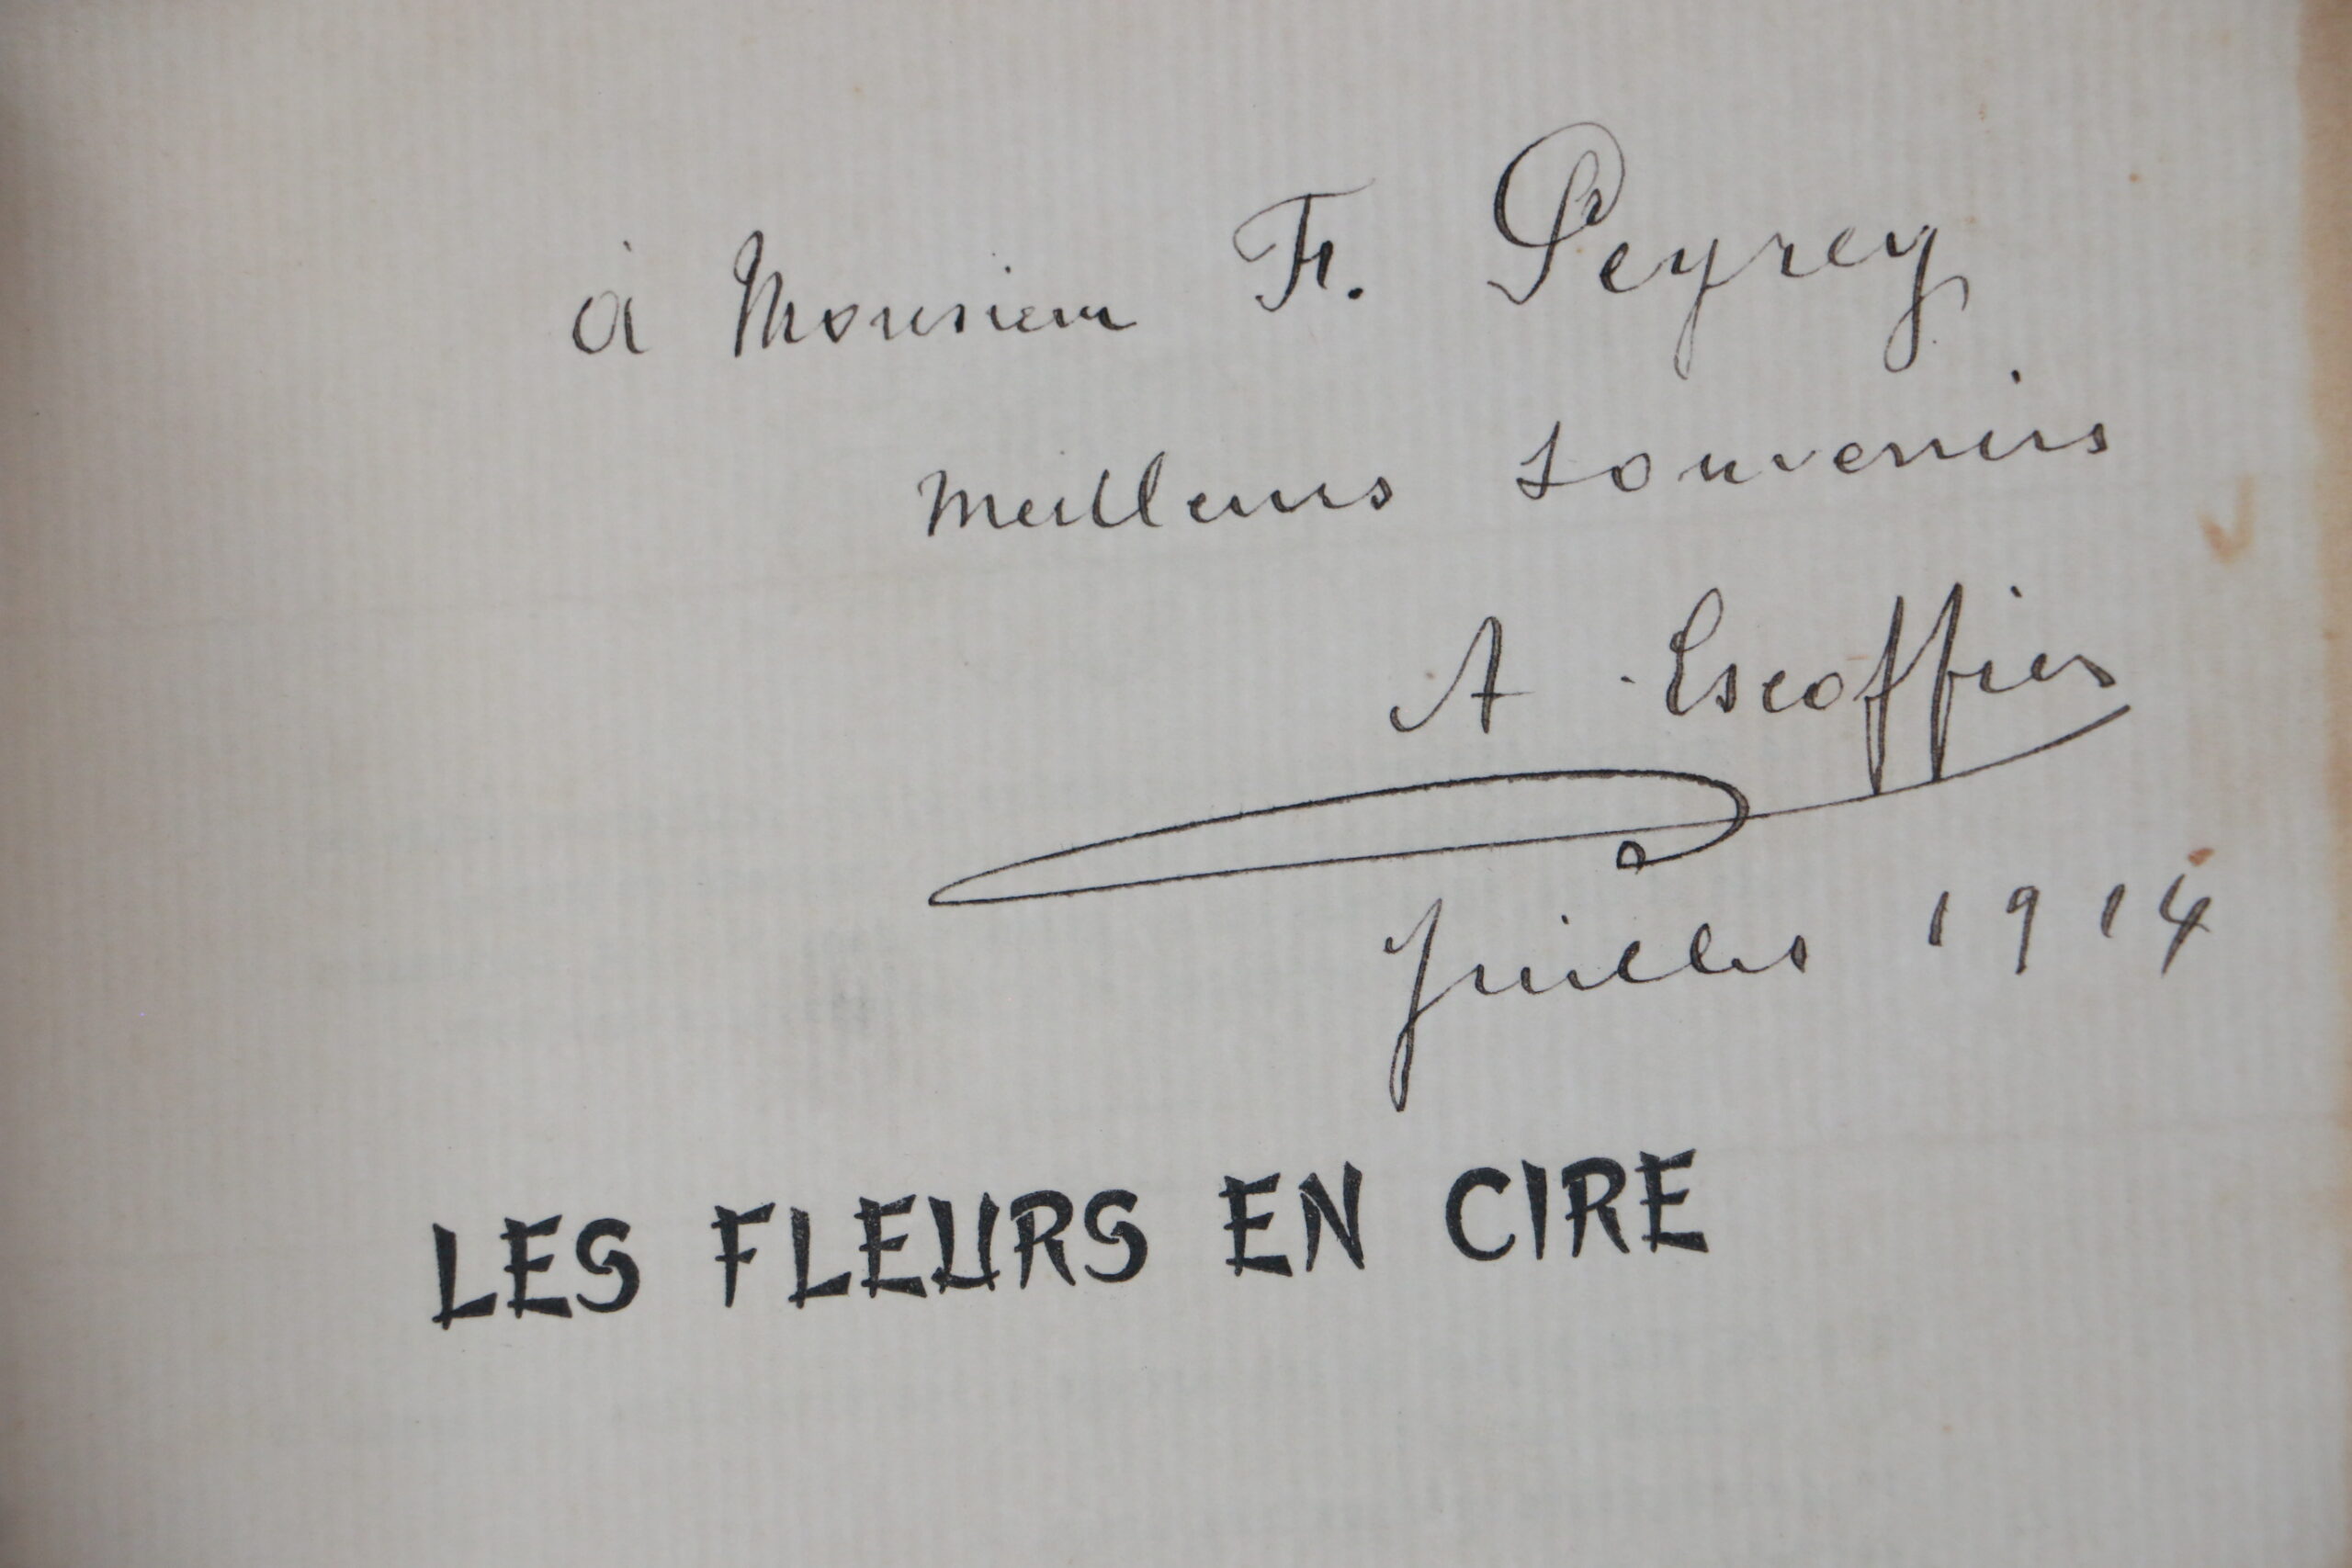 à Monsieur F. Peyrey
Meilleurs souvenirs
A. Escoffier
Juillet 1914
LES FLEURS EN CIRE